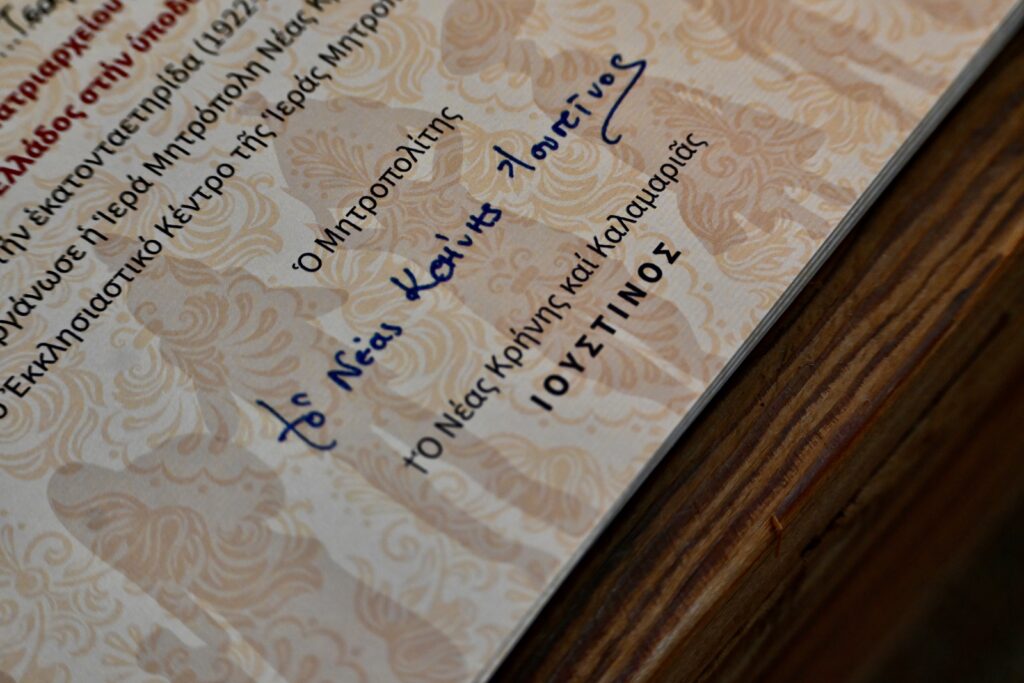 ...Τσα
ατριαρχείου
λλάδος στήν ὑποδο
τήν ἑκατονταετηρίδα (1922-
ργάνωσε ἡ Ἱερά Μητρόπολη Νέας Κρ
ό Ἐκκλησιαστικό Κέντρο τῆς Ἱερᾶς Μητροπό
Ὁ Μητροπολίτης
†Ὁ Νέας Κρήνης Ἰουστῖνος
†Ὁ Νέας Κρήνης καί Καλαμαριᾶς
ΙΟΥΣΤΙΝΟΣ